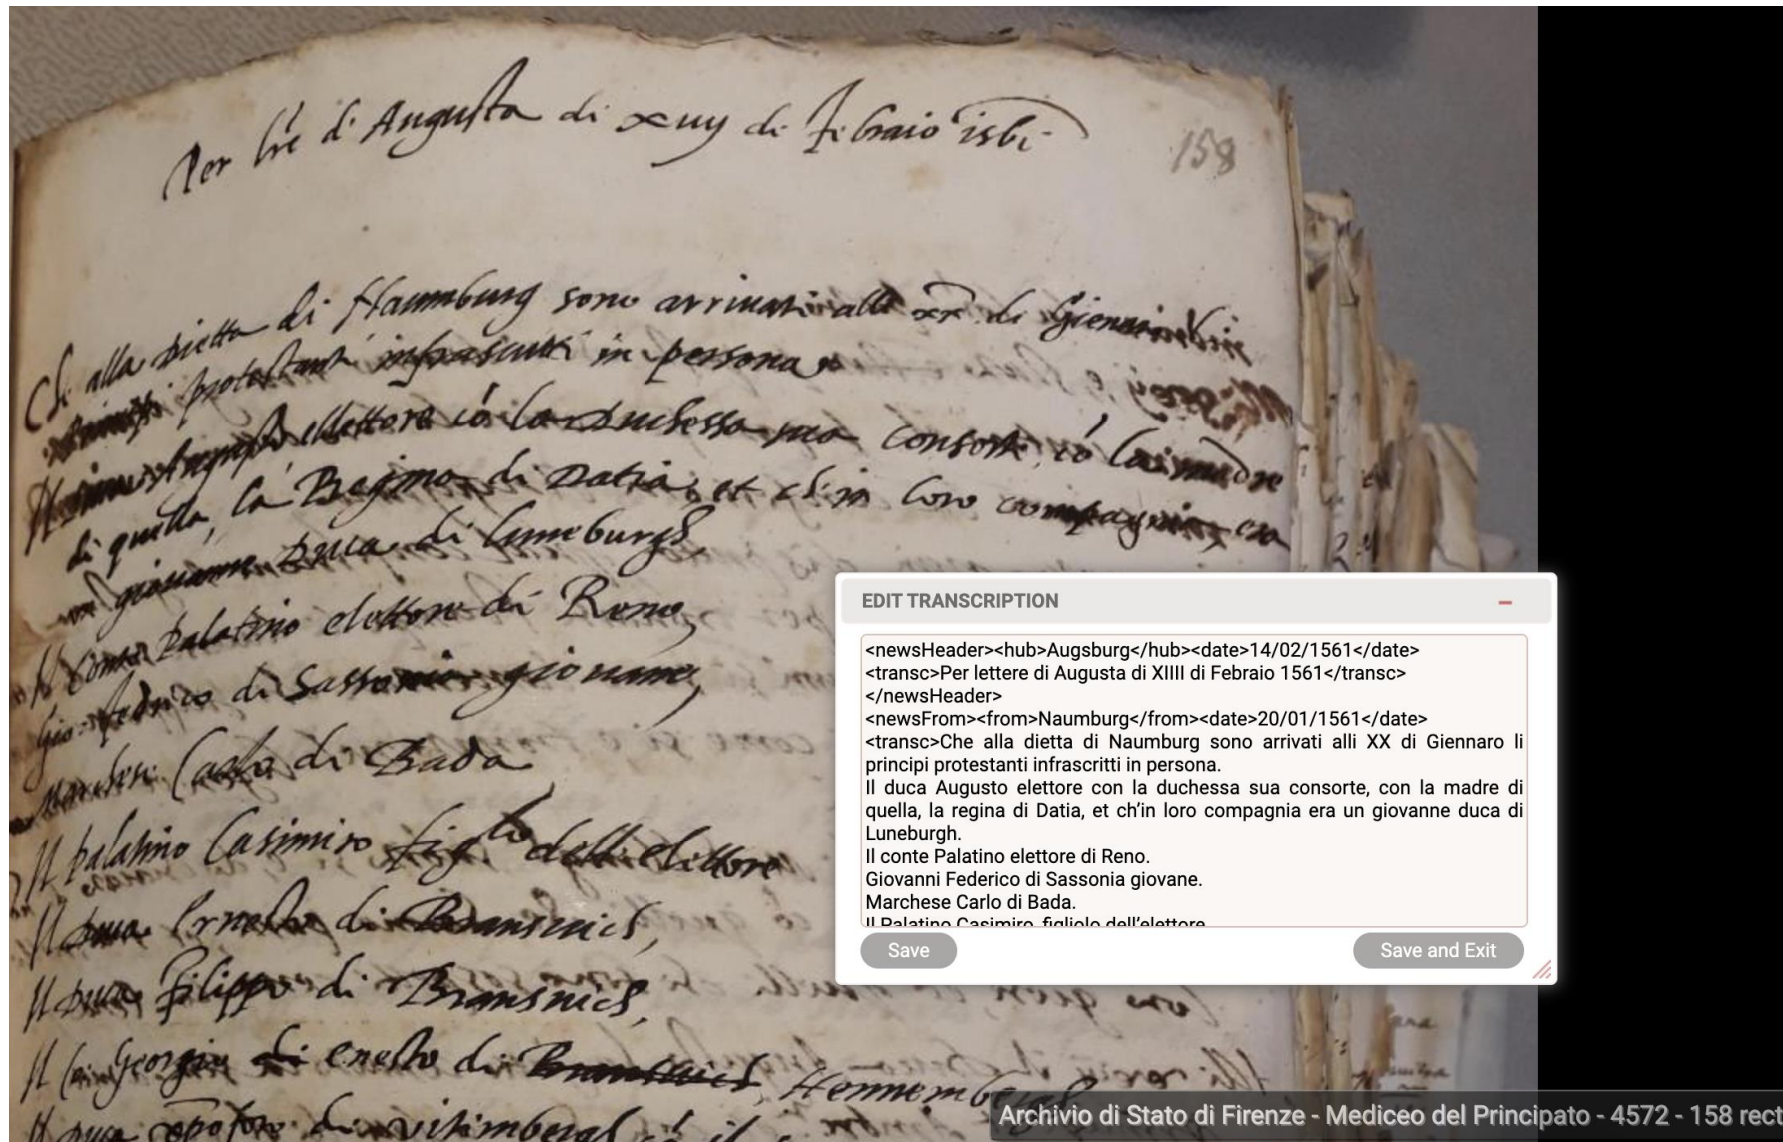 Per lrē di Augusta di xiiij di Febraio 1561
158
Ch' alla dietta di Naumburg sono arrivati alli xx di Giennaro li
principi protestanti infrascritti in persona
Il duca Augusto elettore cō la Duchessa sua consorte, cō la madre
di quella, la Regina di Datia, et ch'in loro compagnia era
un giovanne Duca di Luneburgh,
Il Conte Palatino elettore di Reno,
Gio: Federico di Sassonia giovane,
Marchese Carlo di Bada
Il palatino Casimiro figlo dell'elettore
Il Duca Ernesto di Bransuich,
Il Duca Filippo di Bransuich,
Il Georgio di Enesto di Bransuich, Hennemb
Il Duca di
EDIT TRANSCRIPTION
<newsHeader><hub>Augsburg</hub><date>14/02/1561</date>
<transc>Per lettere di Augusta di XIIII di Febraio 1561</transc>
</newsHeader>
<newsFrom><from>Naumburg</from><date>20/01/1561</date>
<transc>Che alla dietta di Naumburg sono arrivati alli XX di Giennaro li
principi protestanti infrascritti in persona.
Il duca Augusto elettore con la duchessa sua consorte, con la madre di
quella, la regina di Datia, et ch'in loro compagnia era un giovanne duca di
Luneburgh.
Il conte Palatino elettore di Reno.
Giovanni Federico di Sassonia giovane.
Marchese Carlo di Bada.
Il Palatino Casimiro, figliolo dell'elettore
Save
Save and Exit
Archivio di Stato di Firenze - Mediceo del Principato - 4572 - 158 rect